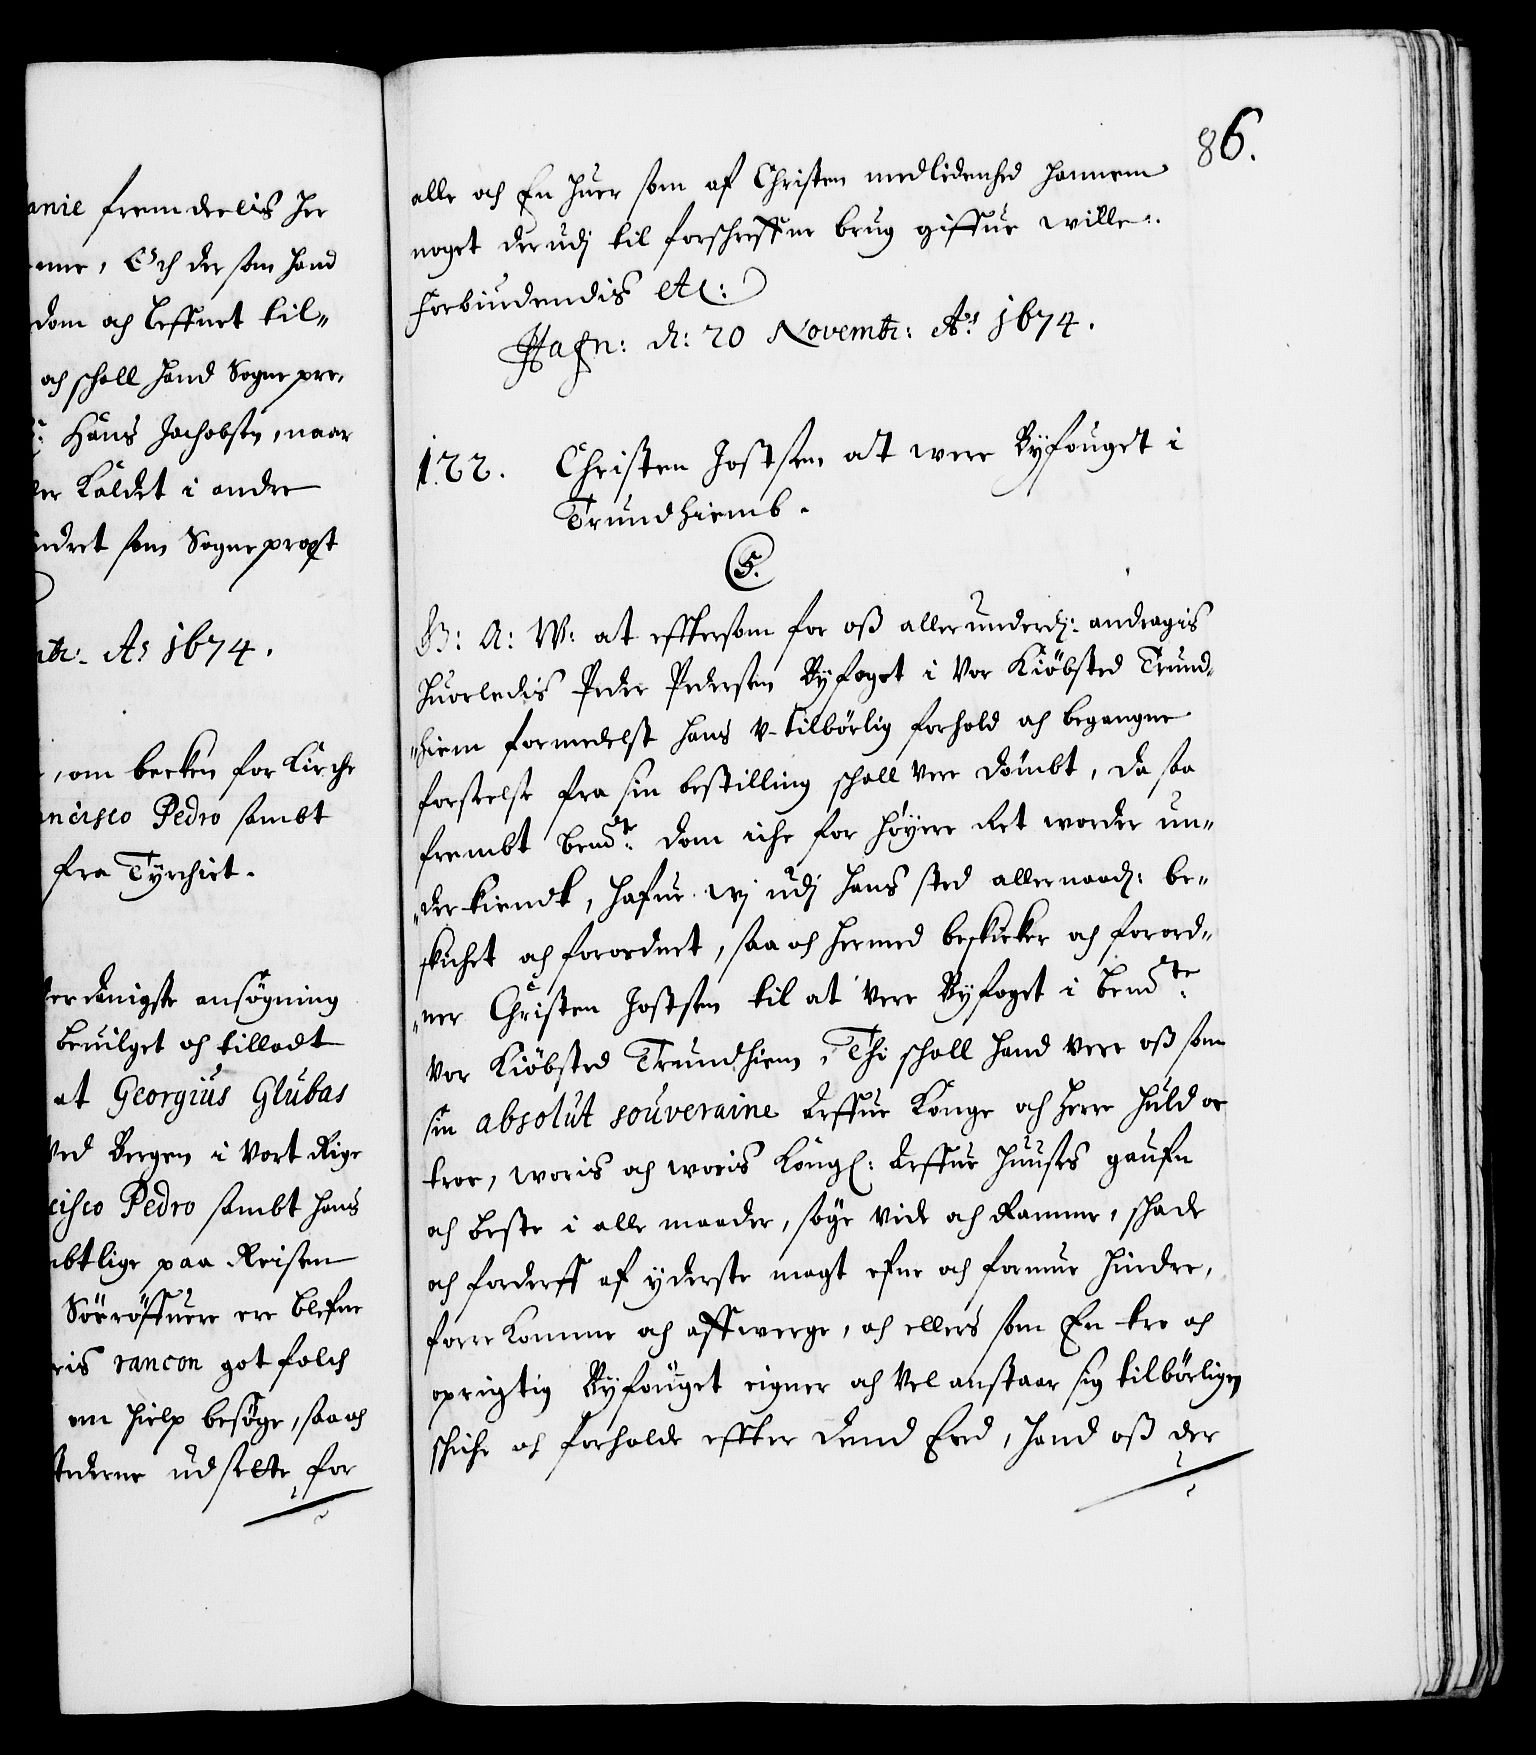 anie fremdelis her
enne, Och dersom hand
dom och leffnet til„
och schall hand Sogne pre,
Hans Jachobsen, naar
ler Kaldet i andre
ndret som Sogneprest
A: 1674.
, om becken for Kirche
ncisco Pedro sambt
fra Tyrchiet.
erdanigste ansøgning
beuilget och tilladt
at Georgius Glubas
ved Bergen i Vort Rige
cisco Pedro sambt hans
btlige paa Reisen
Söeröffuere ere blefne
ris rancon got folch
om hielp besøge, saa och
stederne udsette for
86.
alle och En huer som af Christen medlidenhed hannem
noget derudj til forschreffne brug giffue wille.
Forbiudendis etc:
Hafn: d: 20 Novembr: Ao 1674.
122. Christen Jostsen at were Byfouget i
Trundhiemb.
5.
G: A: W: at efftersom for oß allerunderd: andragis
huorledis Peder Pedersen Byfoget i Vor Kiöbsted Trund„
„hiem formedelst hans v-tilbörlig forhold och begangne
forseelse fra sin bestilling schall vere dömbt, da saa
frembt bemte dom iche for höyere Ret worder un„
„derkiendt, hafue wj udj hans sted allernaad: be„
skichet och forordnet, saa och hermed beskicker och forord„
„ner Christen Jostsen til at vere Byfoget i bemte
Vor Kiöbsted Trundhiem, Thi schall hand vere oß som
sin absolut souveraine Arffue Konge och Herre huld oc
troe, woris och woris Kongl: Arffue Huuses gaufn
och beste i alle maader, söge vide och Ramme, schade
och forderff af yderste magt efne och formue hindre,
forrekomme och affwerge, och ellers som En tro och
oprigtig Byfouget eigner och vel anstaar sig tilbörligen
schiche och forholde effter dend Eed, hand oß der